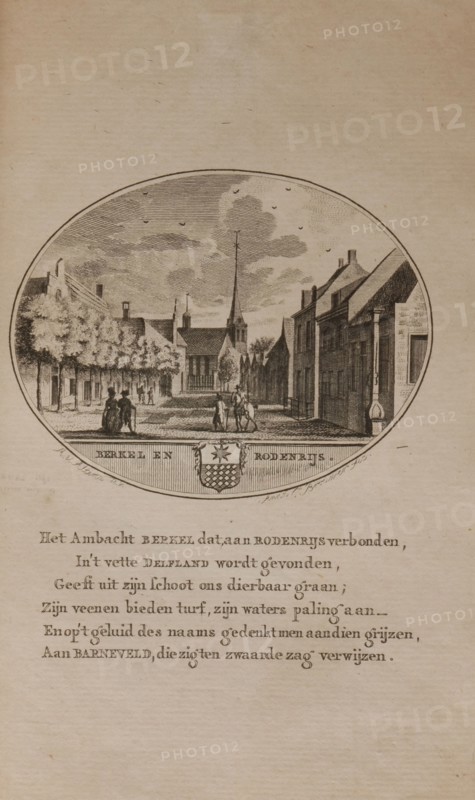 PHOTO12
PHOTO12
PHOTO12
PHOTO12
PHOTO12
BERKEL EN RODENRIJS.
Het Ambacht BERKEL dat, aan RODENRIJS verbonden,
In't vette DELFLAND wordt gevonden,
Geeft uit zijn schoot ons dierbaar graan;
Zijn veenen bieden turf, zijn waters paling aan_
En op't geluid des naams gedenkt men aan dien grijzen,
Aan BARNEVELD, die zig ten zwaarde zag verwijzen.
PHOTO12
PHOTO12